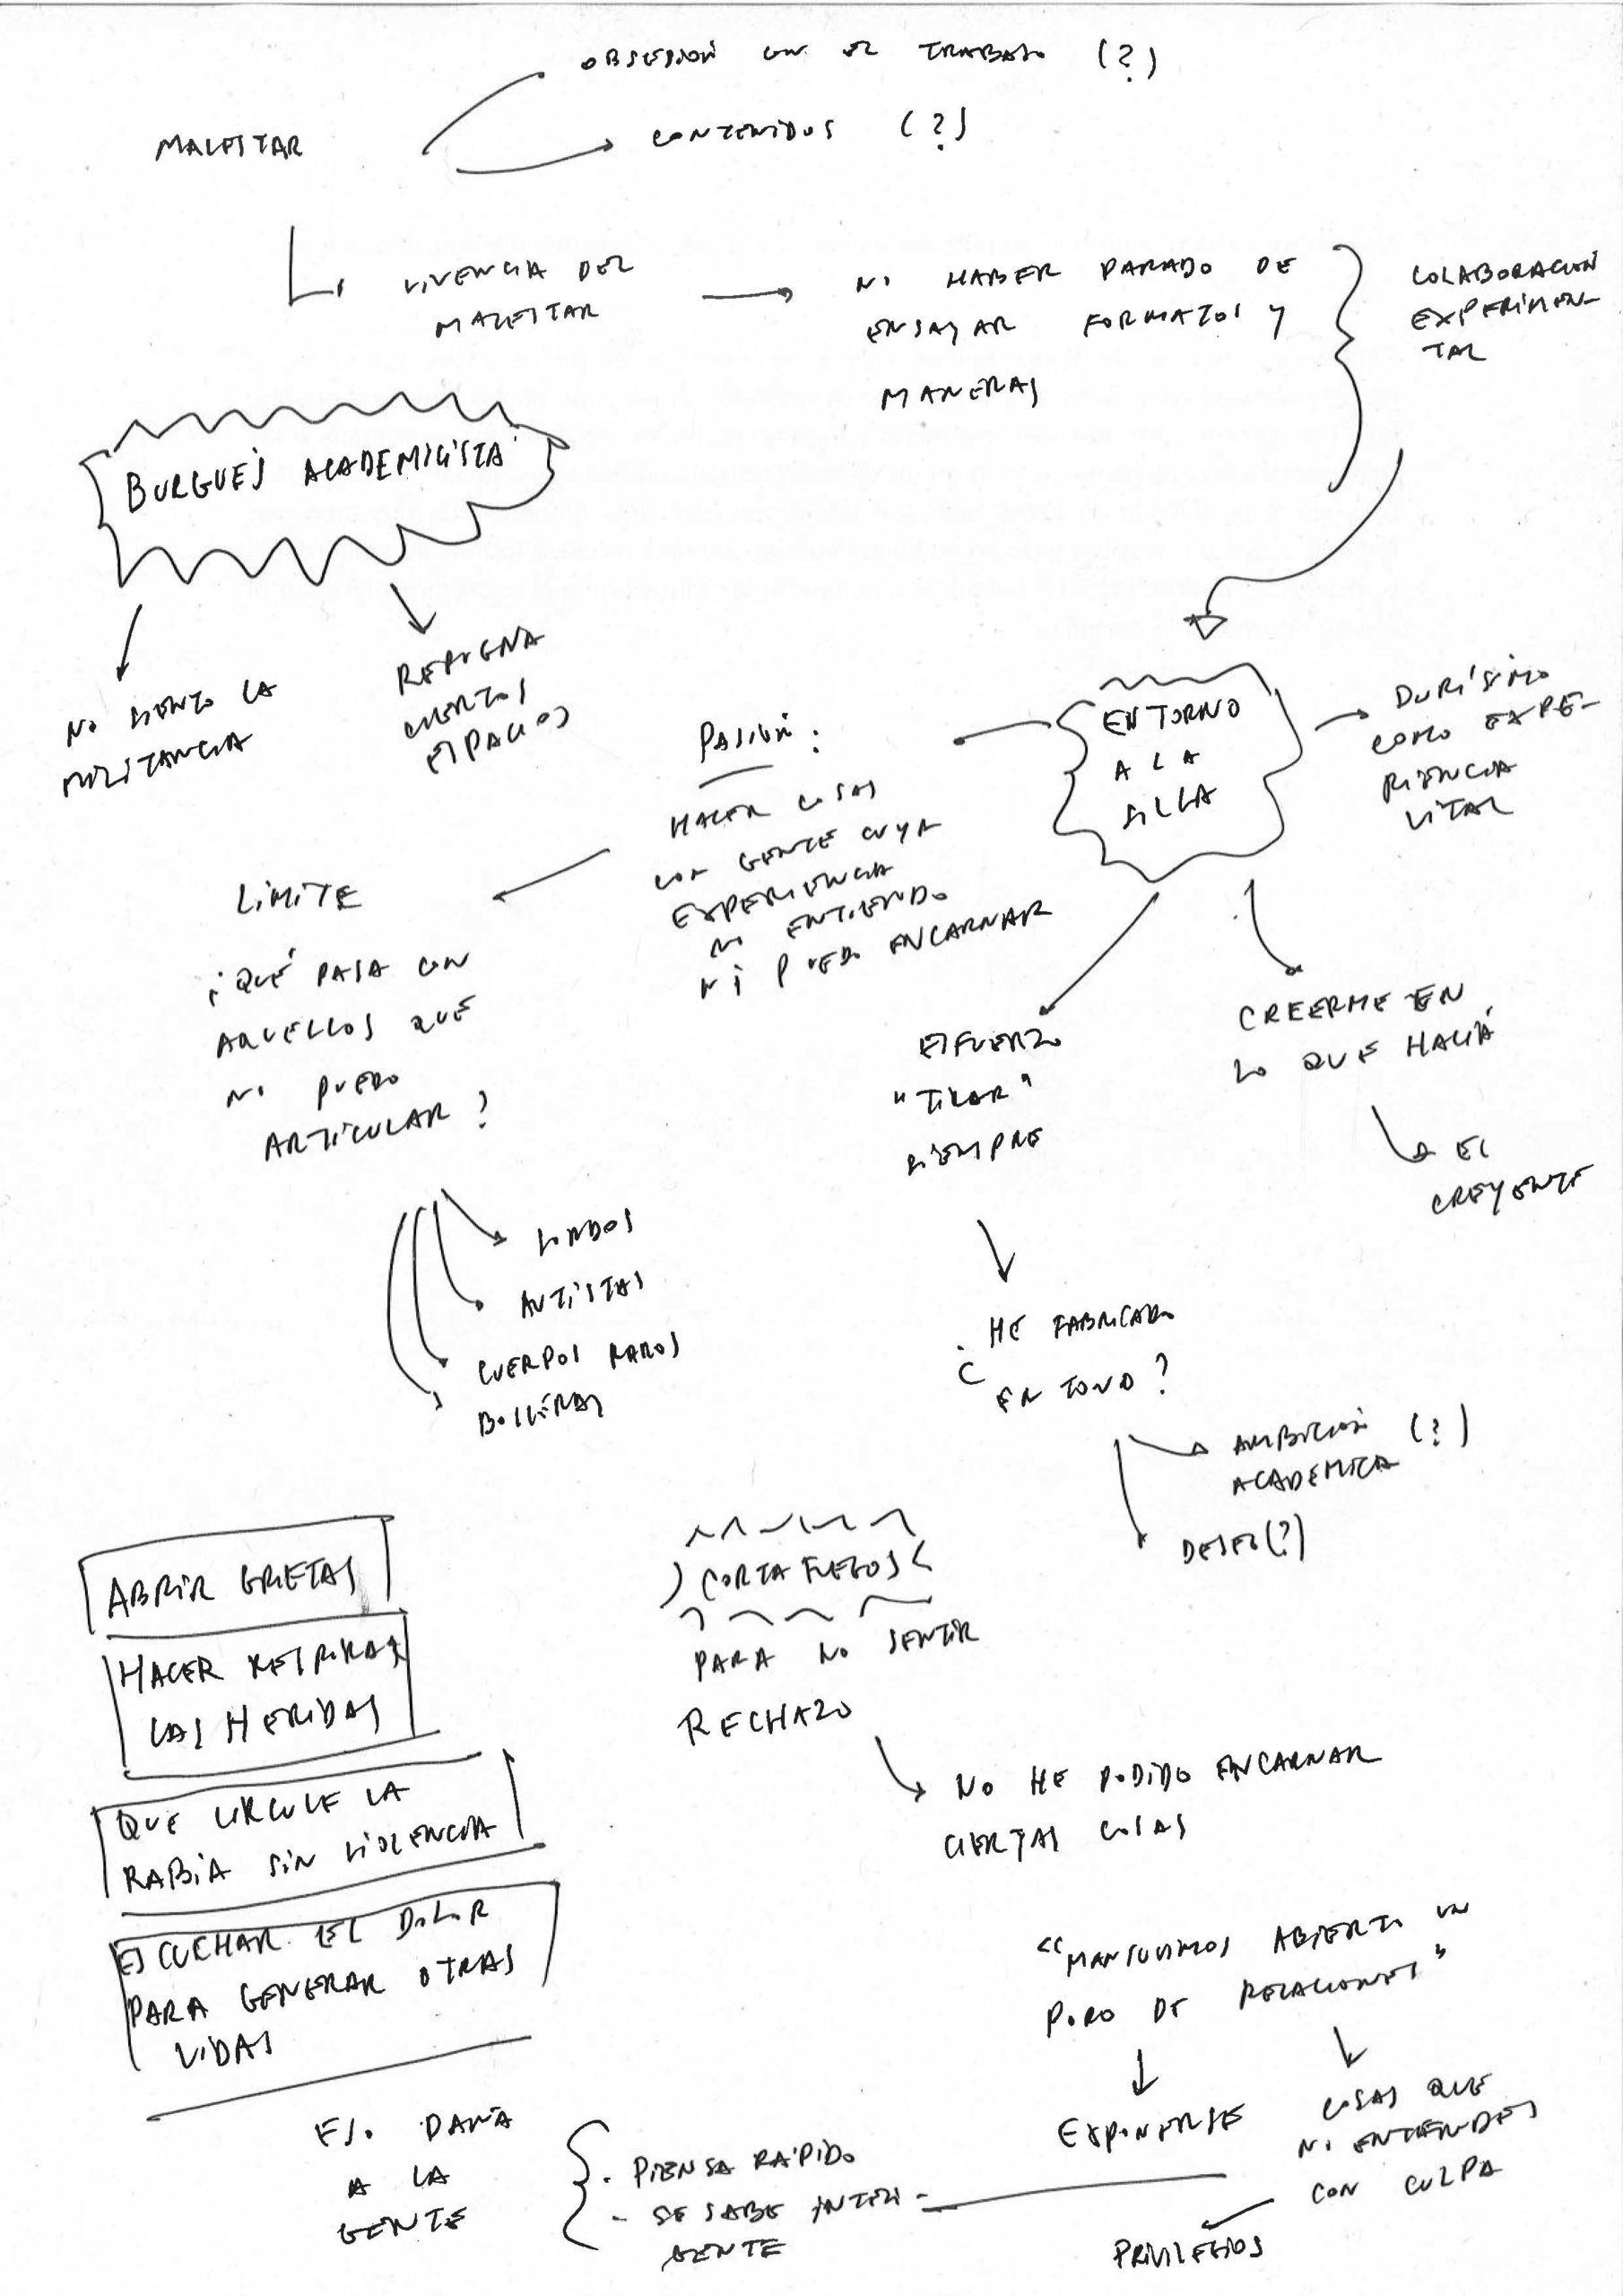 OBSESIÓN CON EL TRABAJO (?)
MALESTAR
CONTENIDOS (?)
VIVENCIA DEL
MALESTAR
NO HABER PARADO DE
ENSAYAR FORMATOS Y
MANERAS
COLABORACIÓN
EXPERIMEN-
TAL
BURGUÉS ACADEMICISTA
NO SIENTO LA
MILITANCIA
REPUGNA
CIERTOS
ESPACIOS
PASIÓN:
HACER COSAS
CON GENTE CUYA
EXPERIENCIA
NO ENTIENDO
NI PUEDO ENCARNAR
EN TORNO
A LA
SILLA
DURÍSIMO
COMO EXPE-
RIENCIA
VITAL
LÍMITE
¿QUÉ PASA CON
AQUELLOS QUE
NO PUEDO
ARTICULAR?
SORDOS
AUTISTAS
CUERPOS RAROS
BOLLERAS
ESFUERZO
"TIRAR"
SIEMPRE
CREERME EN
LO QUE HACÍA
EL
CREYENTE
¿HE FABRICADO
EN TORNO?
AMBICIÓN (?)
ACADÉMICA
DESEO (?)
ABRIR GRIETAS
HACER RESPIRAR
LAS HERIDAS
QUE CIRCULE LA
RABIA SIN VIOLENCIA
ESCUCHAR EL DOLOR
PARA GENERAR OTRAS
VIDAS
CORTAFUEGOS
PARA NO SENTIR
RECHAZO
NO HE PODIDO ENCARNAR
CIERTAS COSAS
"MANTUVIMOS ABIERTO UN
PORO DE RELACIONES"
EXPONERSE
COSAS QUE
NO ENTIENDES
CON CULPA
PRIVILEGIOS
EJ. DAÑA
A LA
GENTE
- PIENSA RÁPIDO
- SE SABE INTELI-
GENTE